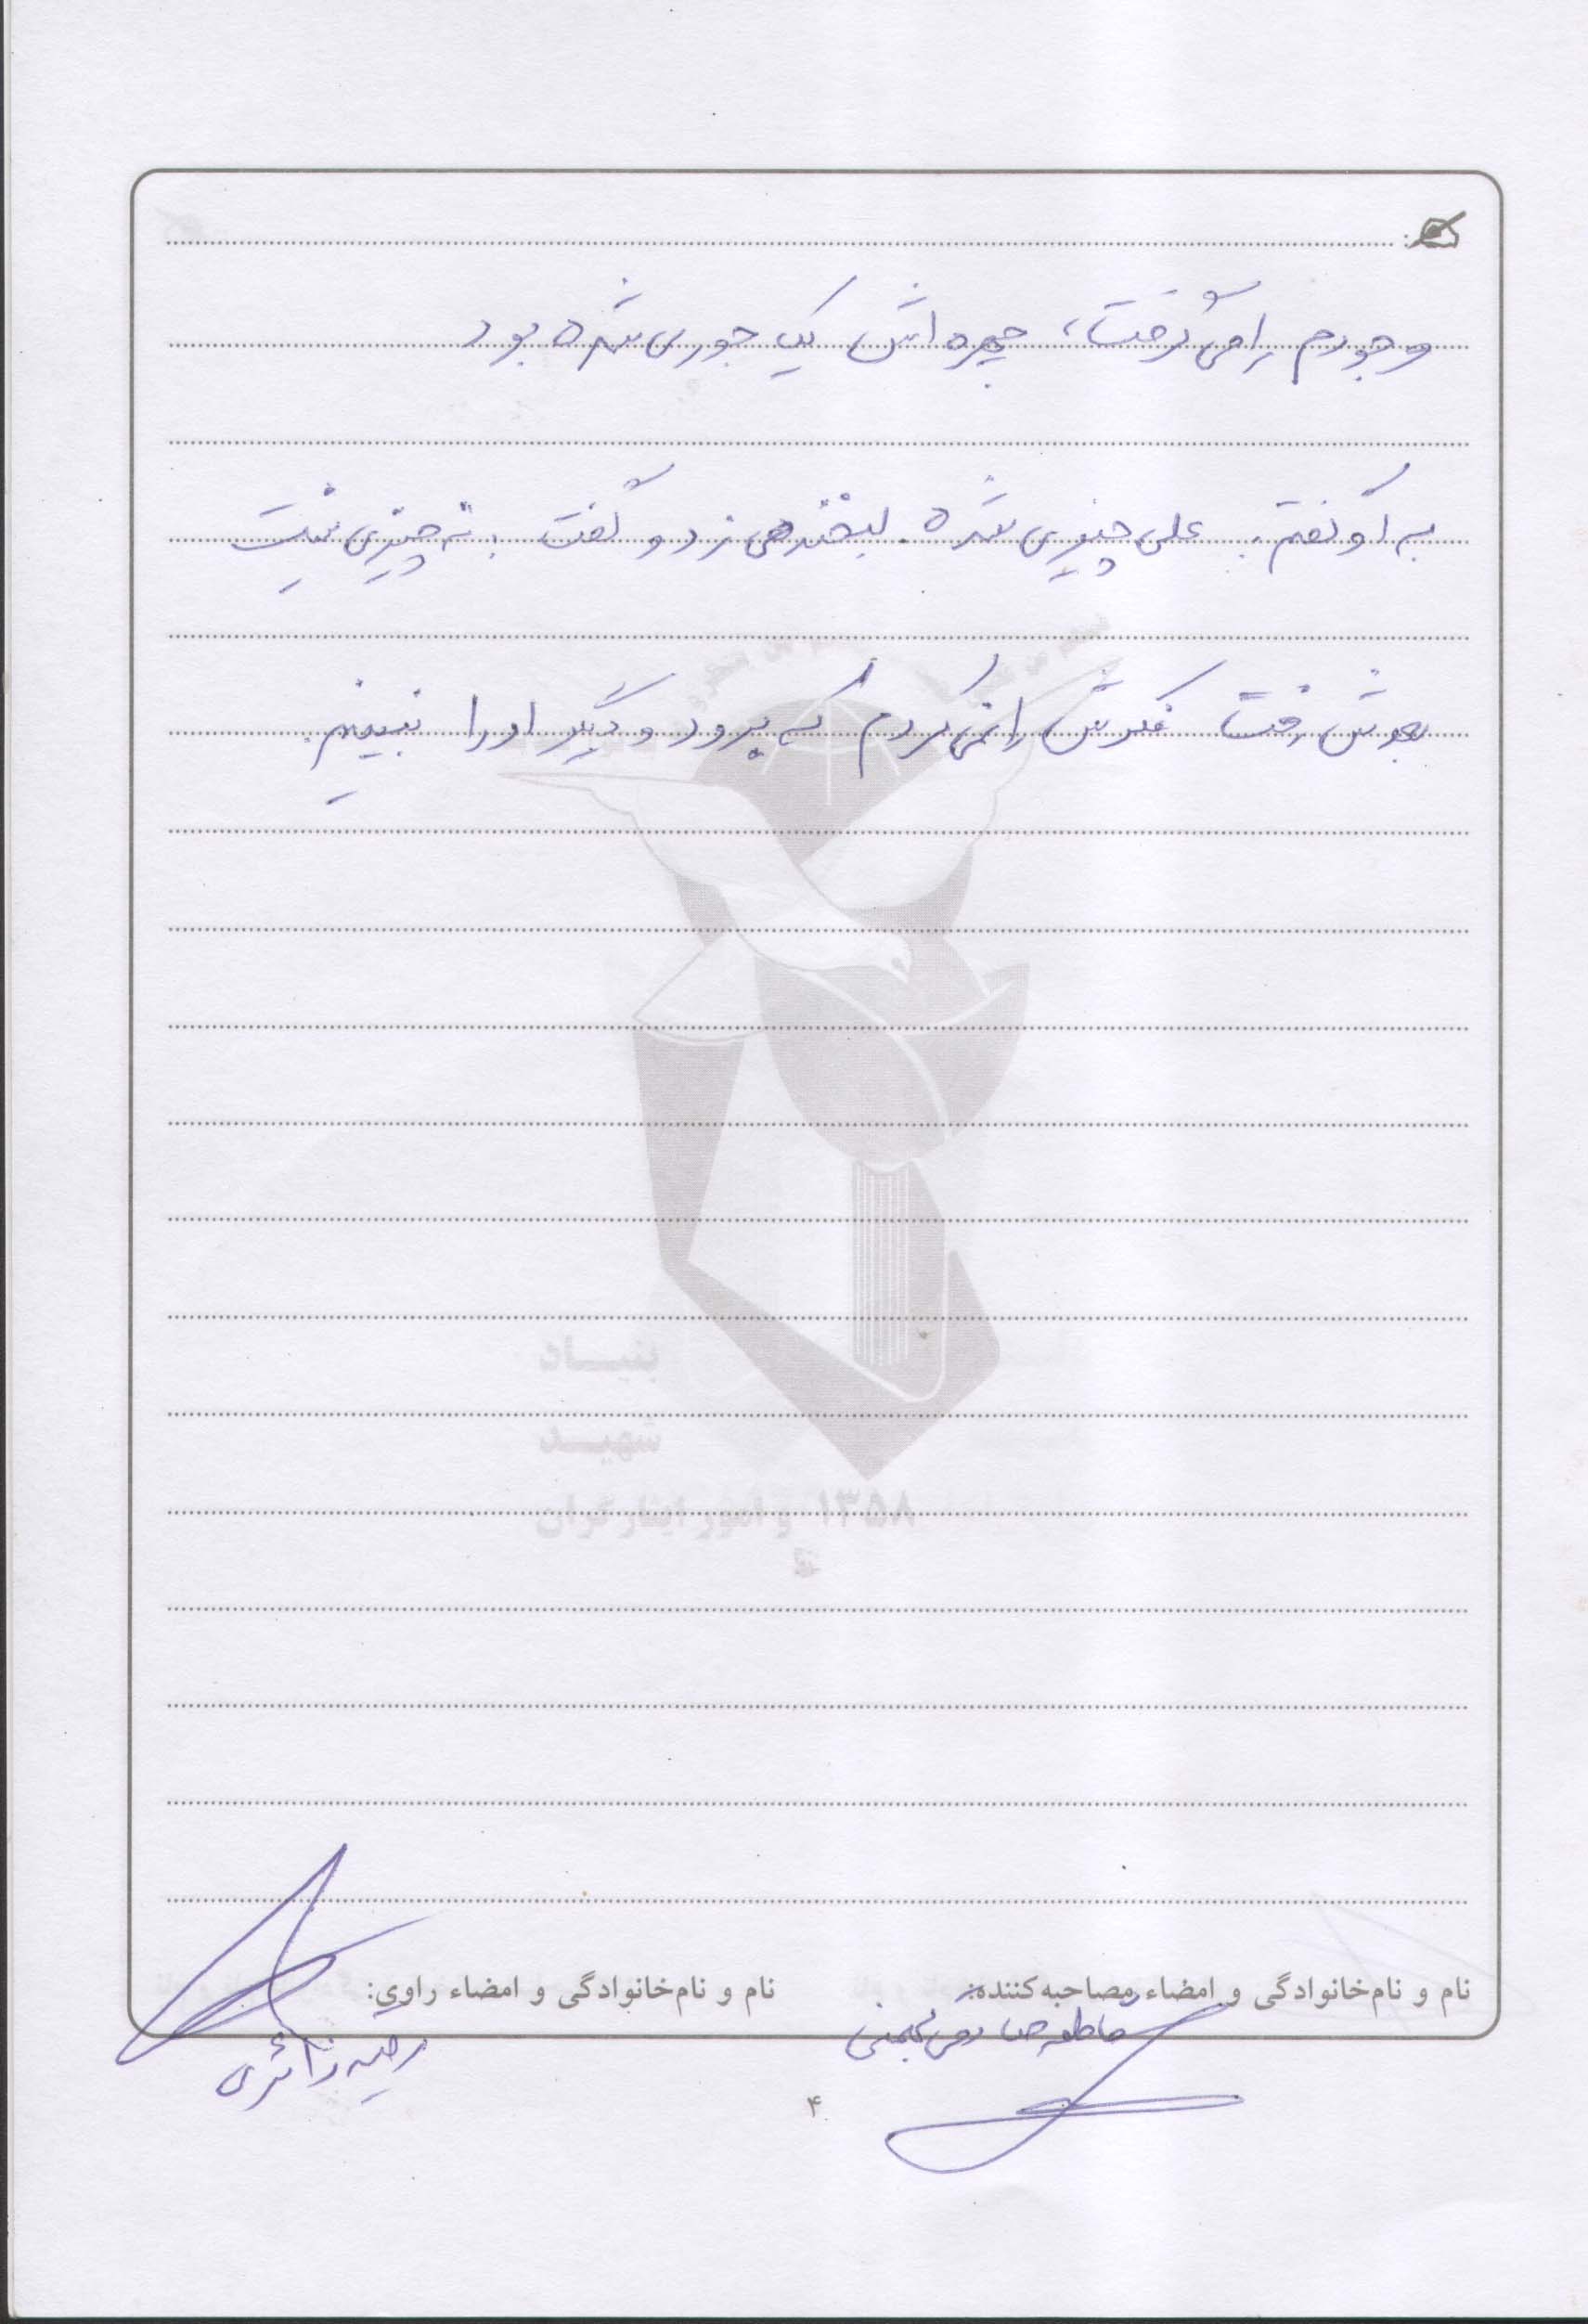 وجودم را می گرفت، چهره اش یک جوری شده بود
به او گفتم: علی چیزی شده. لبخندی زد و گفت: نه چیزی نیست
بعدش رفت فکرش را نمی کردم که برود و دیگر او را نبینم.
بنیاد
شهید
و امور ایثارگران ۱۳۵۸
نام و نام‌خانوادگی و امضاء مصاحبه‌کننده:
نام و نام‌خانوادگی و امضاء راوی:
رقیه زائری
۴